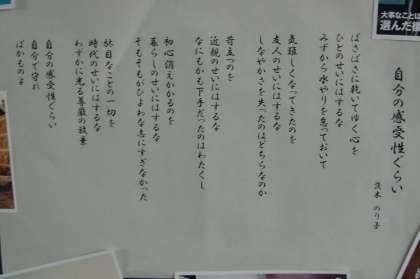 自分の感受性ぐらい
茨木 のり子
ぱさぱさに乾いてゆく心を
ひとのせいにはするな
みずから水やりを怠っておいて
気難しくなってきたのを
友人のせいにはするな
しなやかさを失ったのはどちらなのか
苛立つのを
近親のせいにはするな
なにもかも下手だったのはわたくし
初心消えかかるのを
暮らしのせいにはするな
そもそもがひよわな志にすぎなかった
駄目なことの一切を
時代のせいにはするな
わずかに光る尊厳の放棄
自分の感受性ぐらい
自分で守れ
ばかものよ
大事なことは
選んだ